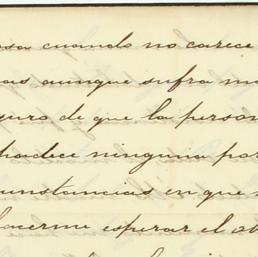 sa cuando no carece
as aunque sufra m
guro de que la person
padece ninguna por
cunstancias en que
hacerme esperar el ob